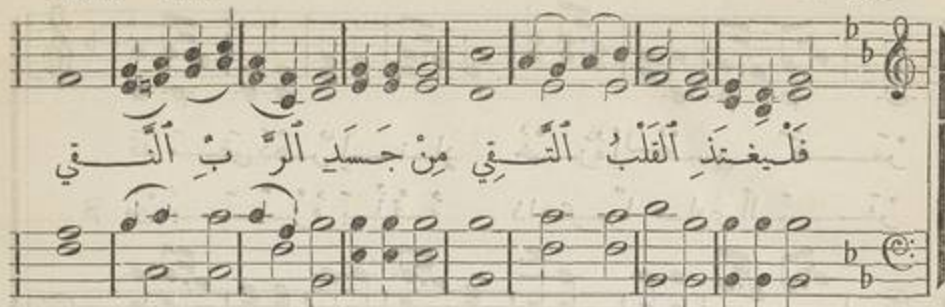 فَلْـيَغـتَذِ ٱلقَلْبُ ٱلتَّـــقِي مِنْ جَـسَدِ ٱلرَّ بِّ ٱلنَّـــقي